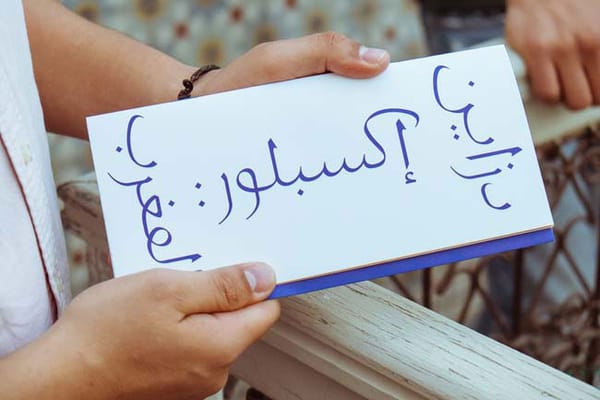 دزاين
إكسبلور:
المغرب